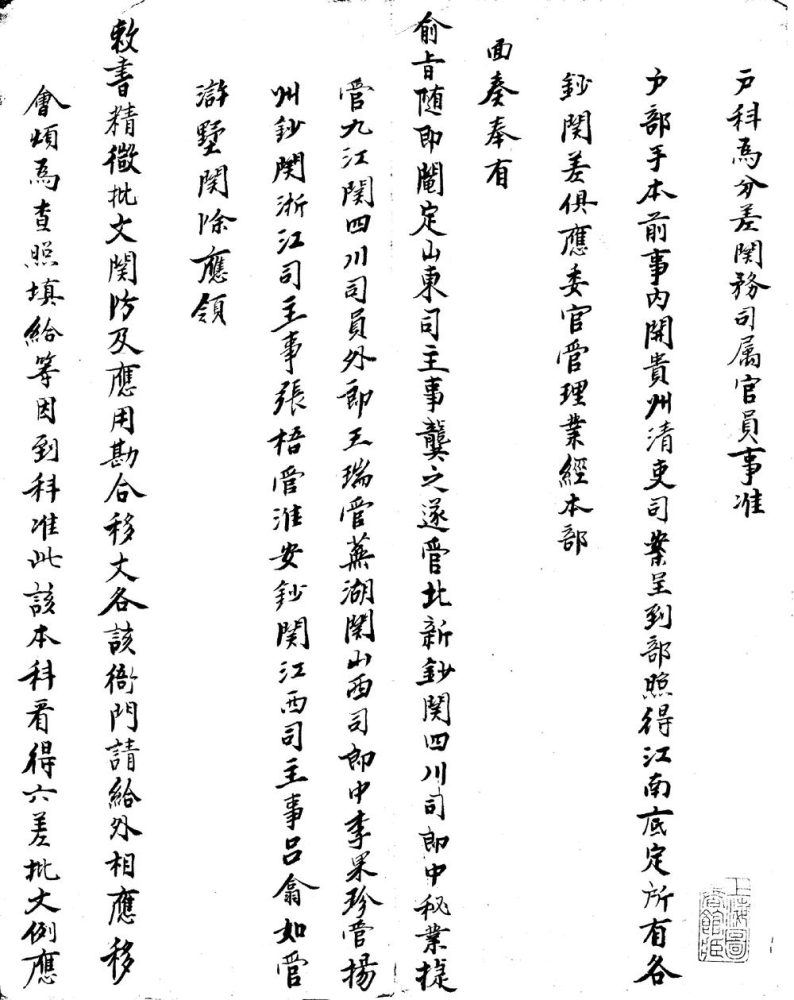 戶科為分差関務司属官員事准
户部手本前事内開貴州清吏司案呈到部照得江南底定所有各
鈔関差俱應委官管理業經本部
面奏奉有
俞㫖随即闈定山東司主事龔之遂管北新鈔関四川司郎中秘業捷
管九江関四川司員外郎王瑞管蕪湖関山西司郎中李果珍管揚
州鈔関浙江司主事張梧管淮安鈔関江西司主事吕翕如管
滸墅関除應領
敕書精微批文関防及應用勘合移文各該衙門請給外相應移
會煩為查照填給等因到科准此該本科看得六差批文例應
上海圖
書館藏